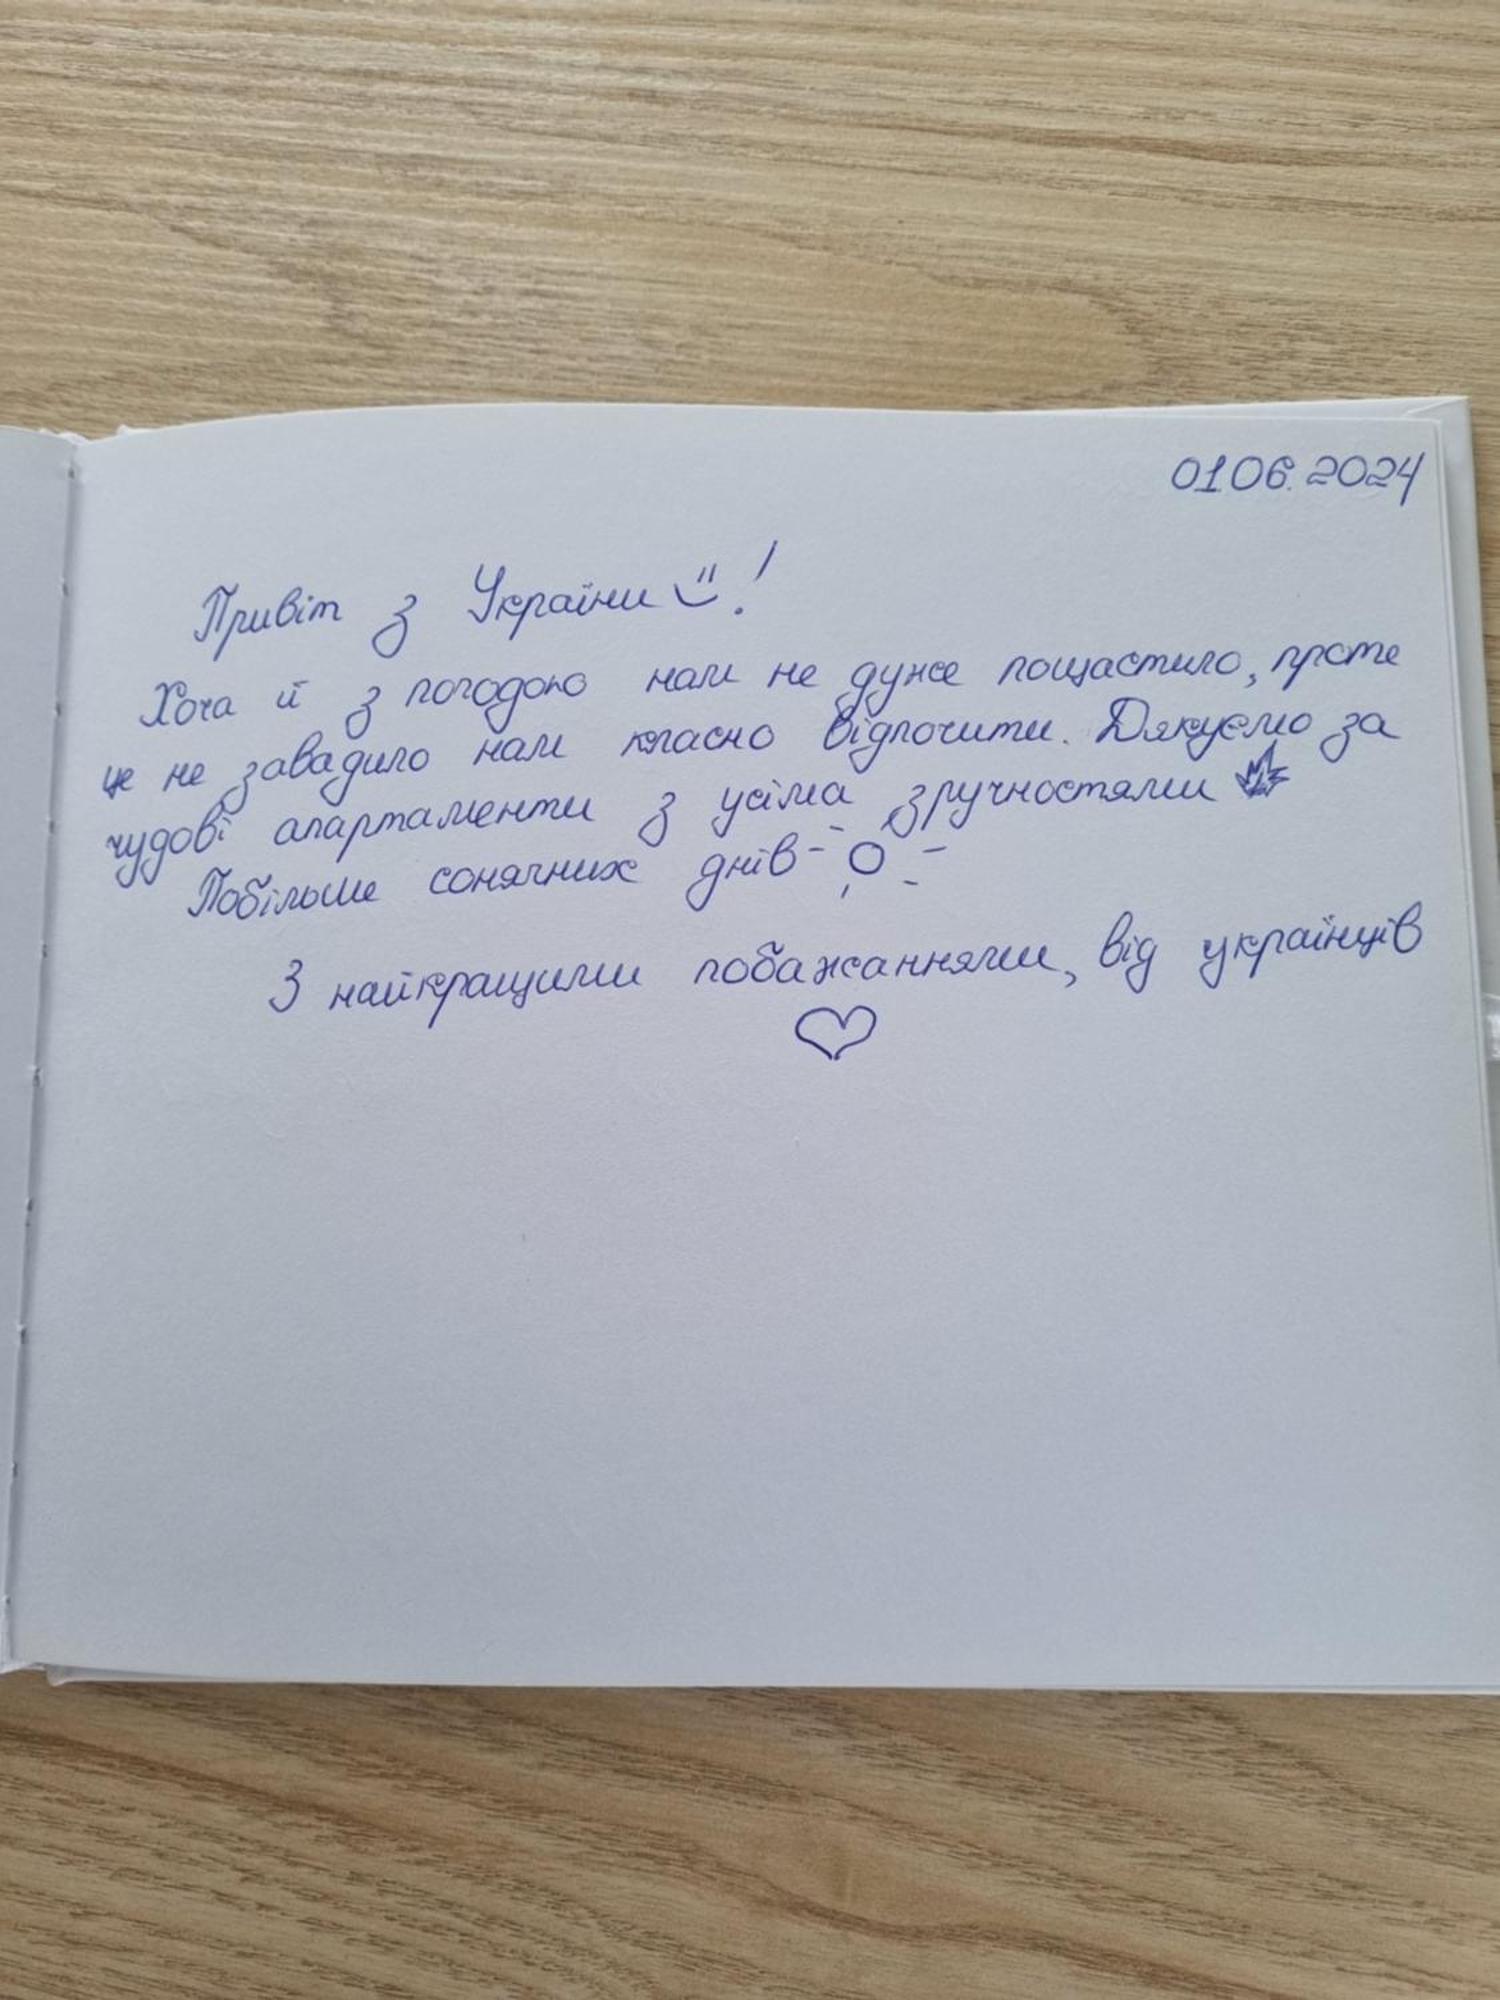 01.06.2024
Привіт з України!
Хоча й з погодою нам не дуже пощастило, проте
це не завадило нам класно відпочити. Дякуємо за
чудові апартаменти з усіма зручностями
Побільше сонячних днів
З найкращими побажаннями, від українців